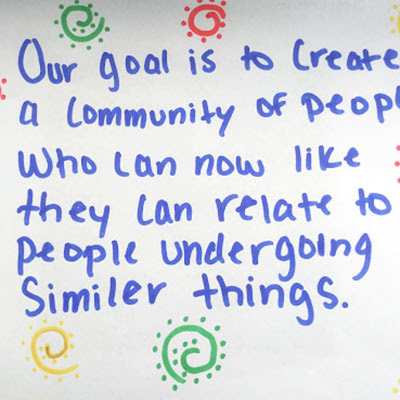 Our goal is to Create
a Community of peopl
who can now like
they can relate to
people undergoing
Similer things.